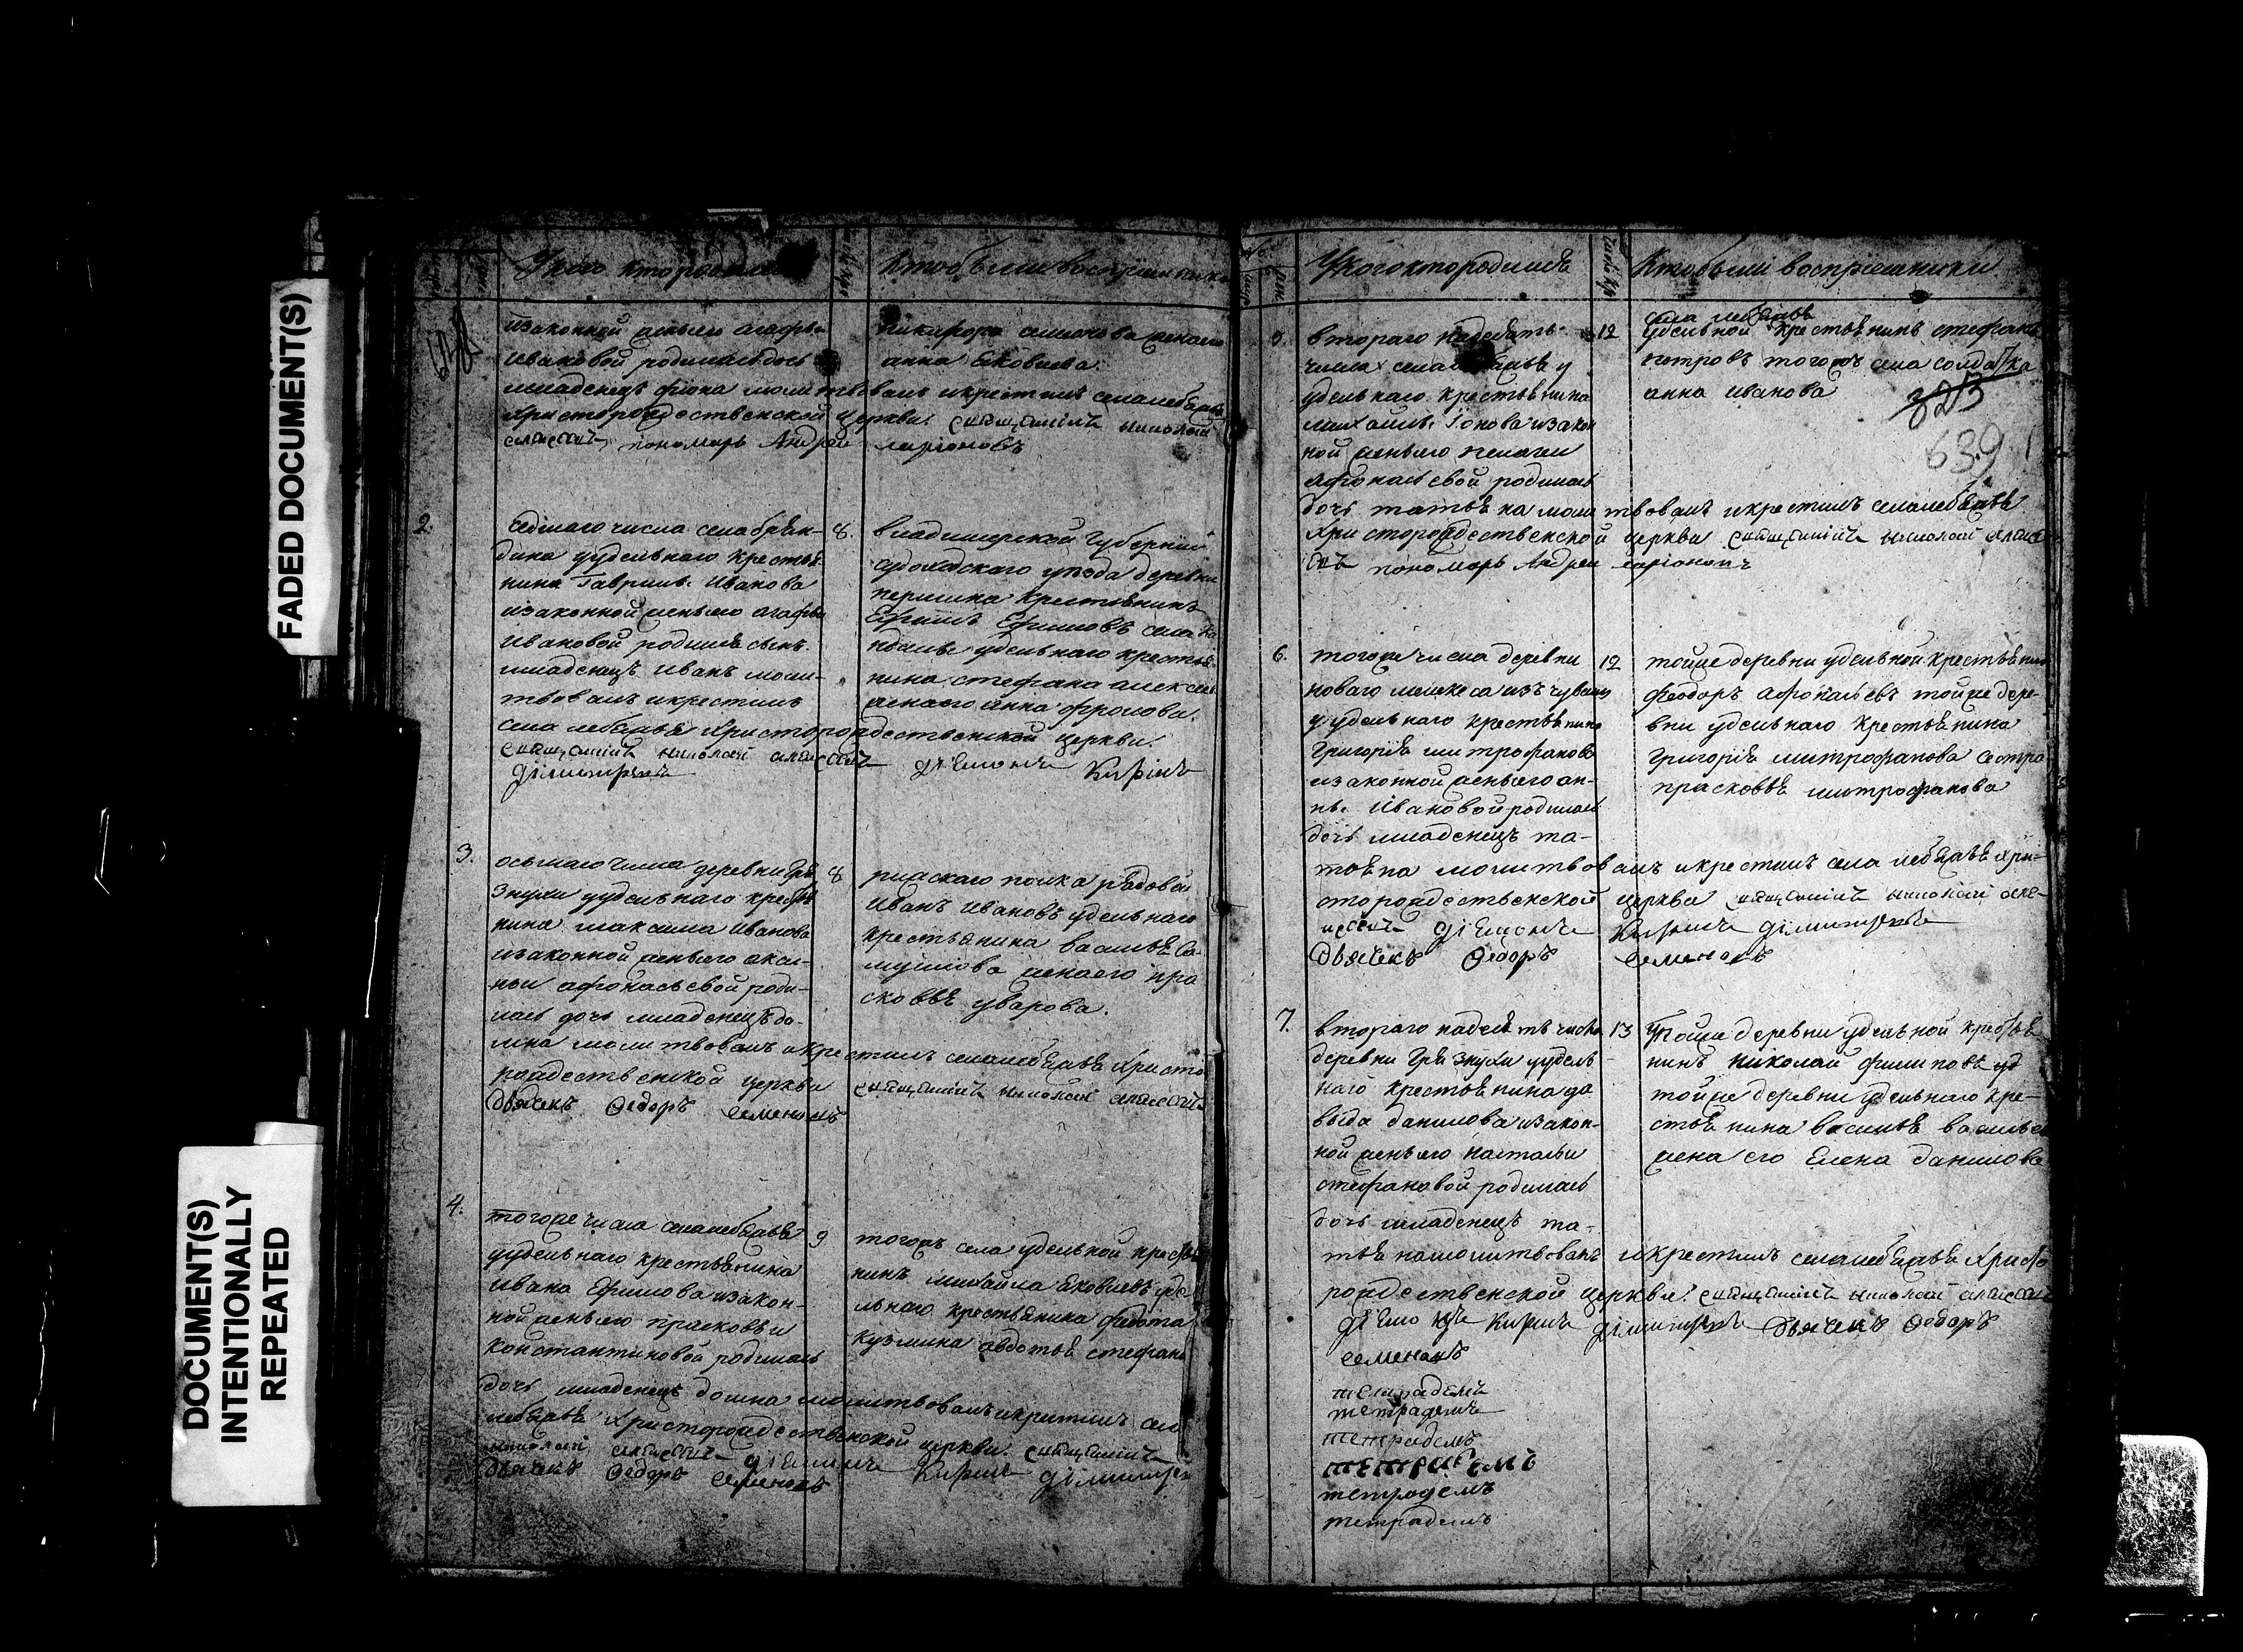 FADED DOCUMENT(S)
DOCUMENT(S)
INTENTIONALLY
REPEATED
У кого кто родился
Кто были воспріемники
изаконной жены его агафьи
ивановой родилась дочь
младенецъ фіона молитвовалъ икрестилъ села лебяжья
христорождественской церкви священникъ николай
алексеевъ пономарь Андрей ларіоновъ
никифора семионова жена его
анна Яковлева.
2.
седмаго числа села брян-
дина уудельнаго крестья
нина Гаврилы Иванова
изаконной жены его агафьи
ивановой родился сынъ
младенецъ Иванъ моли-
твовалъ икрестилъ
села лебяжья Христорождественской церкви.
священникъ николай алексеевъ діяконъ Кирилъ
дімитріевъ
8.
владимерской Губерніи
судогодского уезда деревни
першина Крестьянинъ
Ефимъ Ефимовъ села
удельнаго крестья
нина стефана алексеева
жена его анна фролова.
3.
осьмаго числа деревни гря
знухи уудельнаго крестья
нина максима Иванова
изаконной жены его акси-
ньи афонасьевой роди-
лась дочь младенецъ до-
мна молитвовалъ икрестилъ села лебяжья Христо
рождественской церкви священникъ николай алексеевъ
Дьячекъ Федоръ семеновъ
8
полка рядовой
Иванъ Ивановъ удельнаго
крестьянина василья са
муилова жена его пра
сковья уварова.
4.
тогоже числа села лебяжья
уудельнаго крестьянина
Ивана Ефимова изакон-
ной жены его прасковьи
константиновой родилась
дочь младенецъ домна молитвовалъ икрестилъ села
лебяжья Христорождественской церкви священникъ
николай алексеевъ діяконъ Кирилъ дімитріевъ
Дьячекъ Федоръ семеновъ
9
тогожъ села удельной крестья
нинъ михайла Яковлевъ уде
льнаго крестьянина федота
кузмина авдотья стефано
У кого кто родился
Кто были воспріемники
5.
втораго надесять
числа села лебяжья у
удельнаго крестьянина
михайлы Іонова изакон
ной жены его пелагеи
афонасьевой родилась
дочь татьяна молитвовалъ икрестилъ села лебяжья
Христорождественской церкви священникъ николай алексе
евъ пономарь Андрей ларіоновъ
12
села лебяжья
удельной крестьянинъ стефанъ
петровъ тогожъ села солдатка
анна иванова
323
639
6.
тогоже числа деревни
новаго мелекеса изъ чувашъ
у удельнаго крестьянина
Григорія митрофанова
изаконной жены его ан-
ны Ивановой родилась
дочь младенецъ та-
тьяна молитвовалъ икрестилъ села лебяжья хри-
сторождественской церкви священникъ николай алек-
сеевъ діяконъ Кирилъ дімитріевъ
Дьячекъ Федоръ семеновъ
12
тойже деревни удельной крестьянинъ
феодоръ афонасьевъ тойже дере-
вни удельнаго крестьянина
Григорія митрофанова сестра
прасковья митрофанова
7.
втораго надесять числа
деревни Грязнухи уудель-
наго крестьянина да
выда данилова изакон-
ной жены его натальи
стефановой родилась
дочь младенецъ та-
тьяна молитвовалъ икрестилъ села лебяжья Христо
рождественской церкви священникъ николай алексеевъ
діяконъ Кирилъ дімитріевъ Дьячекъ Федоръ
семеновъ
13
Тойже деревни удельной крестья
нинъ николай филиповъ уд
тойже деревни удельнаго кре-
стьянина василья васильева
жена его Елена данилова
тетрадемъ
тетрадемъ
тетрадемъ
тетрадемъ
тетрадемъ
тетрадемъ